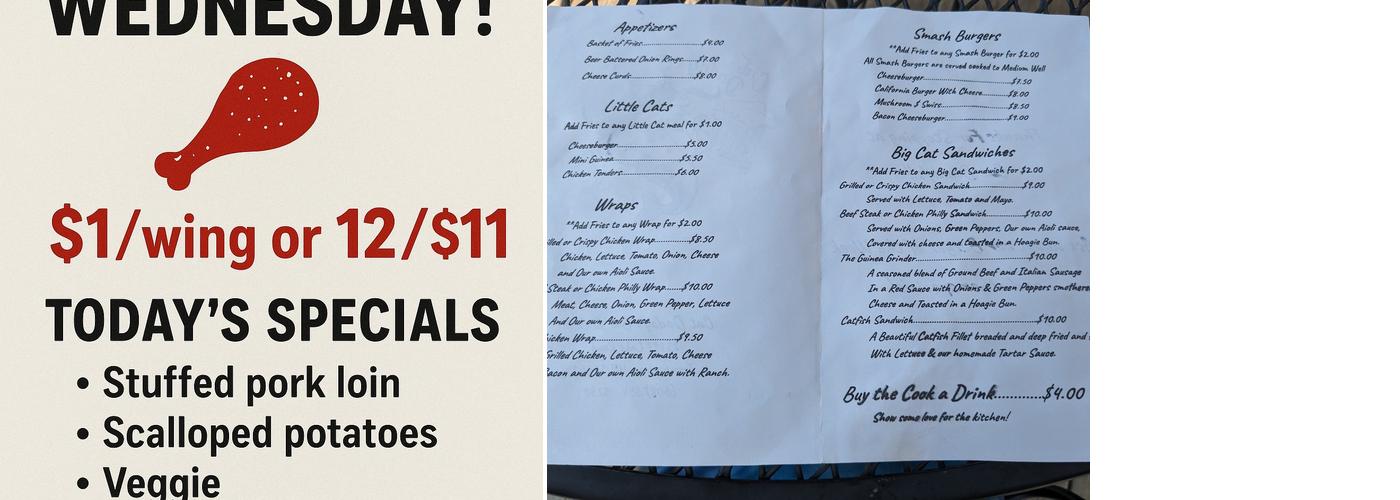 WEDNESDAY!
$1/wing or 12/$11
TODAY'S SPECIALS
• Stuffed pork loin
• Scalloped potatoes
• Veggie
Appetizers
Basket of Fries....................$4.00
Beer Battered Onion Rings......$7.00
Cheese Curds......................$8.00
Little Cats
Add Fries to any Little Cat meal for $1.00
Cheeseburger.......................$5.00
Mini Guinea.........................$5.50
Chicken Tenders....................$6.00
Wraps
**Add Fries to any Wrap for $2.00
or Crispy Chicken Wrap............$8.50
Chicken, Lettuce, Tomato, Onion, Cheese
and Our own Aioli Sauce.
Steak or Chicken Philly Wrap......$10.00
Meat, Cheese, Onion, Green Pepper, Lettuce
And Our own Aioli Sauce.
Wrap............................$9.50
Grilled Chicken, Lettuce, Tomato, Cheese
Bacon and Our own Aioli Sauce with Ranch.
Smash Burgers
**Add Fries to any Smash Burger for $2.00
All Smash Burgers are served cooked to Medium Well
Cheeseburger.............................$7.50
California Burger With Cheese........$8.00
Mushroom & Swiss......................$8.50
Bacon Cheeseburger....................$9.00
Big Cat Sandwiches
**Add Fries to any Big Cat Sandwich for $2.00
Grilled or Crispy Chicken Sandwich....................$9.00
Served with Lettuce, Tomato and Mayo.
Beef Steak or Chicken Philly Sandwich..............$10.00
Served with Onions, Green Peppers, Our own Aioli sauce,
Covered with cheese and toasted in a Hoagie Bun.
The Guinea Grinder.......................................$10.00
A seasoned blend of Ground Beef and Italian Sausage
In a Red Sauce with Onions & Green Peppers
Cheese and Toasted in a Hoagie Bun.
Catfish Sandwich..........................................$10.00
A Beautiful Catfish Fillet breaded and deep fried and
With Lettuce & our homemade Tartar Sauce.
Buy the Cook a Drink............$4.00
Show some love for the kitchen!